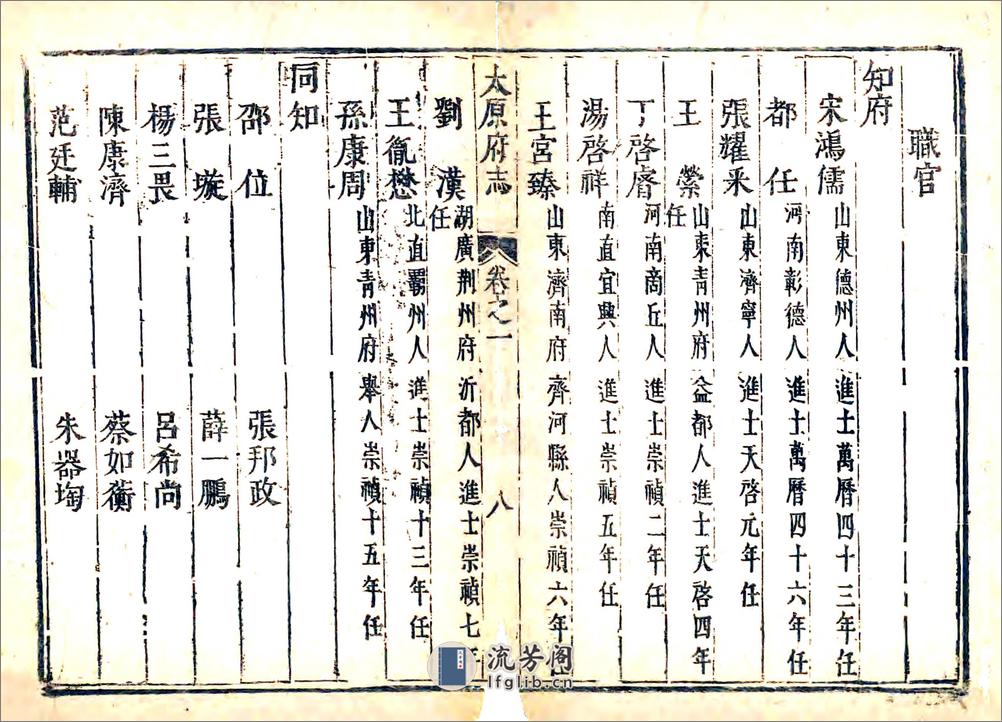 職官
知府
宋鴻儒 山東德州人進士萬曆四十三年任
都任 河南彰德人進士萬曆四十六年任
張耀采 山東濟寧人進士天啓元年任
王縈 山東青州府益都人進士天啓四年任
丁啓睿 河南商丘人進士崇禎二年任
湯啓祥 南直宜興人進士崇禎五年任
王宮臻 山東濟南府齊河縣人崇禎六年任
太原府志 卷之一 八
劉漢 湖廣荆州府沂都人進士崇禎七年任
王胤懋 北直霸州人進士崇禎十三年任
孫康周 山東青州府舉人崇禎十五年任
同知
邵位 張邦政
張璇 薛一鵬
楊三畏 呂希尚
陳康濟 蔡如蘅
范廷輔 朱器㘐
流芳阁
lfglib.cn